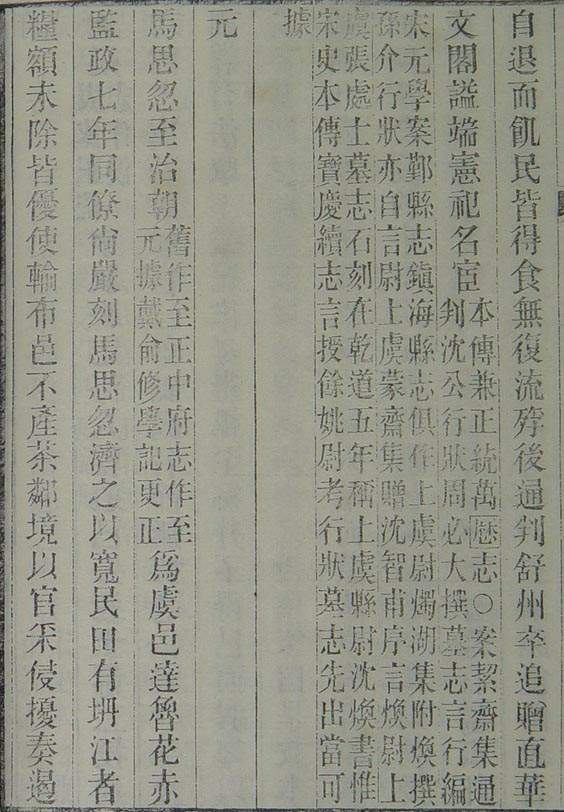 自退而飢民皆得食無復流殍後通判舒州卒追贈直華
文閣諡端憲祀名宦
本傳兼正統萬歷志○案絜齋集通
判沈公行狀周必大撰墓志言行編
宋元學案鄞縣志鎮海縣志俱作上虞尉燭湖集附煥撰
孫介行狀亦自言尉上虞蒙齋集贈沈智甫序言煥尉上
虞張處士墓志石刻在乾道五年稱上虞縣尉沈煥書惟
宋史本傳寶慶續志言授餘姚尉考行狀墓志先出當可
據
元
馬思忽至治朝
舊作至正中府志作至
元據戴俞修學記更正
爲虞邑達魯花赤
監政七年同僚尚嚴刻馬思忽濟之以寬民田有坍江者
糧額未除皆優使輸布邑不產茶鄰境以官采侵擾奏遏